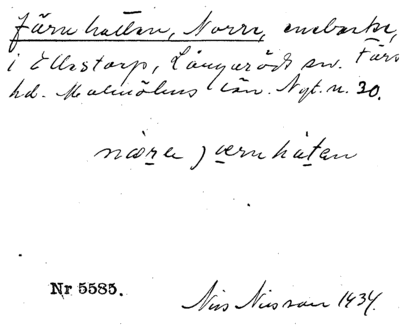 Järnhatten, Norre, enebacke,
i Ellestorp, Långaröds sn. Färs
hd. Malmöhus län. Ngt. n. 30.
nære jærnhaten
Nr 5585.
Nils Nilsson 1934.